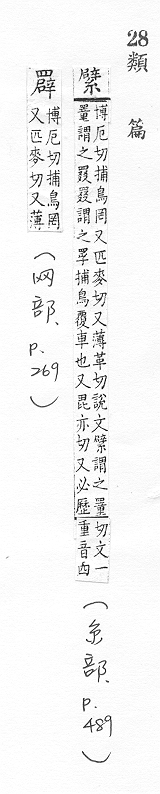 28 類篇
繴 博厄切捕鳥罔又匹麥切又薄革切說文繴謂之罿切文一
罿謂之罬罬謂之罦捕鳥覆車也又毘亦切又必歷重音四
(糸部、p.489)
䍤 博厄切捕鳥罔
又匹麥切又薄
(网部、p.269)